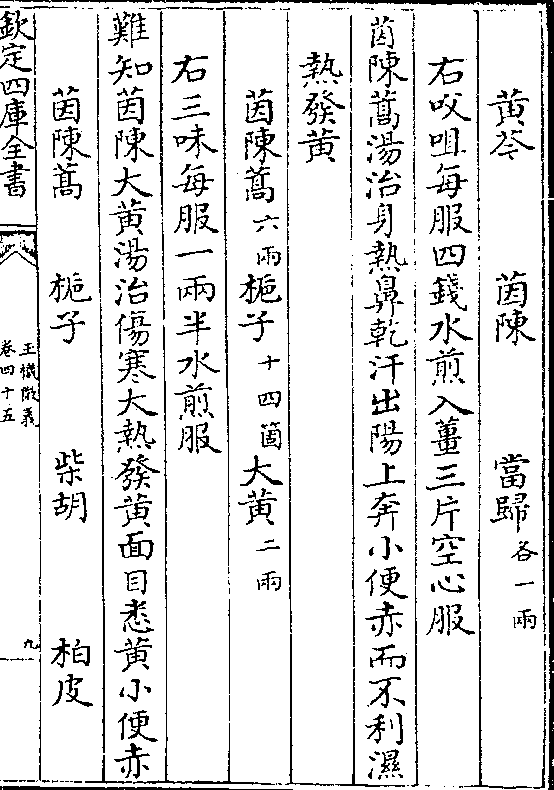 黄芩　茵陳　當歸各一兩
右㕮咀每服四錢水煎入薑三片空心服
茵陳蒿湯治身熱鼻乾汗出陽上奔小便赤而不利濕
熱發黄
茵陳蒿六兩梔子十四箇大黄二兩
右三味每服一兩半水煎服
難知茵陳大黄湯治傷寒大熱發黄面目悉黄小便赤
茵陳蒿　梔子　柴胡　柏皮
欽定四庫全書
玉機微義
卷四十五
九